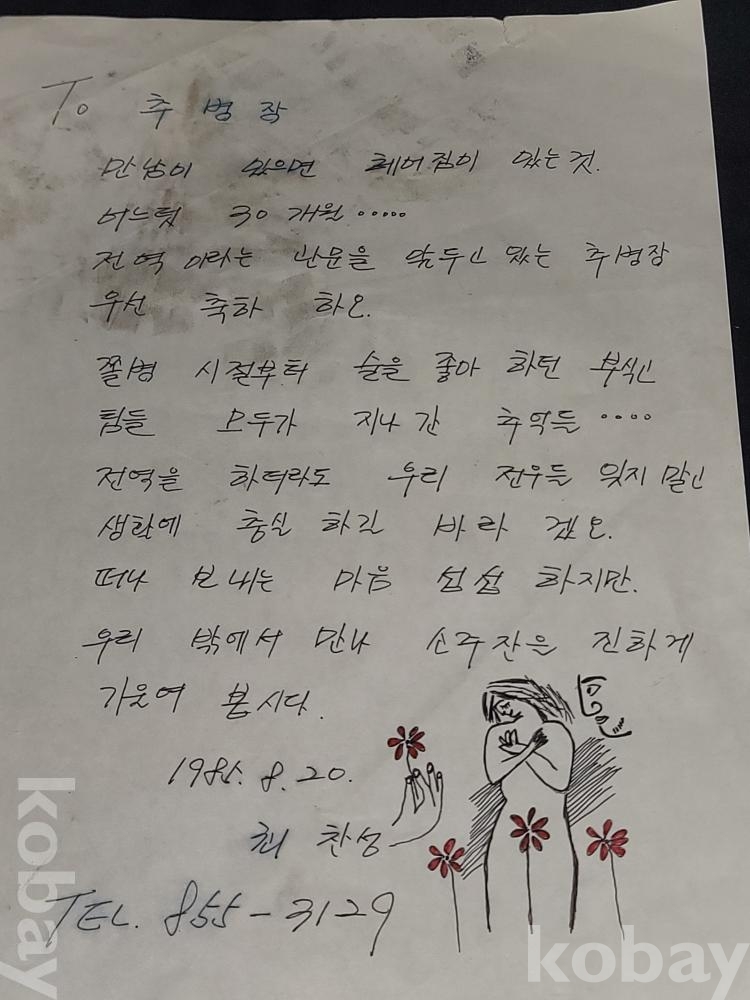 To 추병장
만남이 있으면 헤어짐이 있는것.
어느덧 30개월.....
전역 이라는 난문을 앞두고 있는 추병장
우선 축하 하오.
쫄병 시절부터 술을 좋아 하던
팀들 모두가 지나간 추억들....
전역을 하더라도 우리 전우들 잊지말고
생활에 충실 하길 바라 겠오.
떠나 보내는 마음 섭섭 하지만.
우리 밖에서 만나 소주잔은 진하게
기울여 봅시다.
1985. 8. 20.
최 찬성
TEL. 855-3129
kobay
kobay